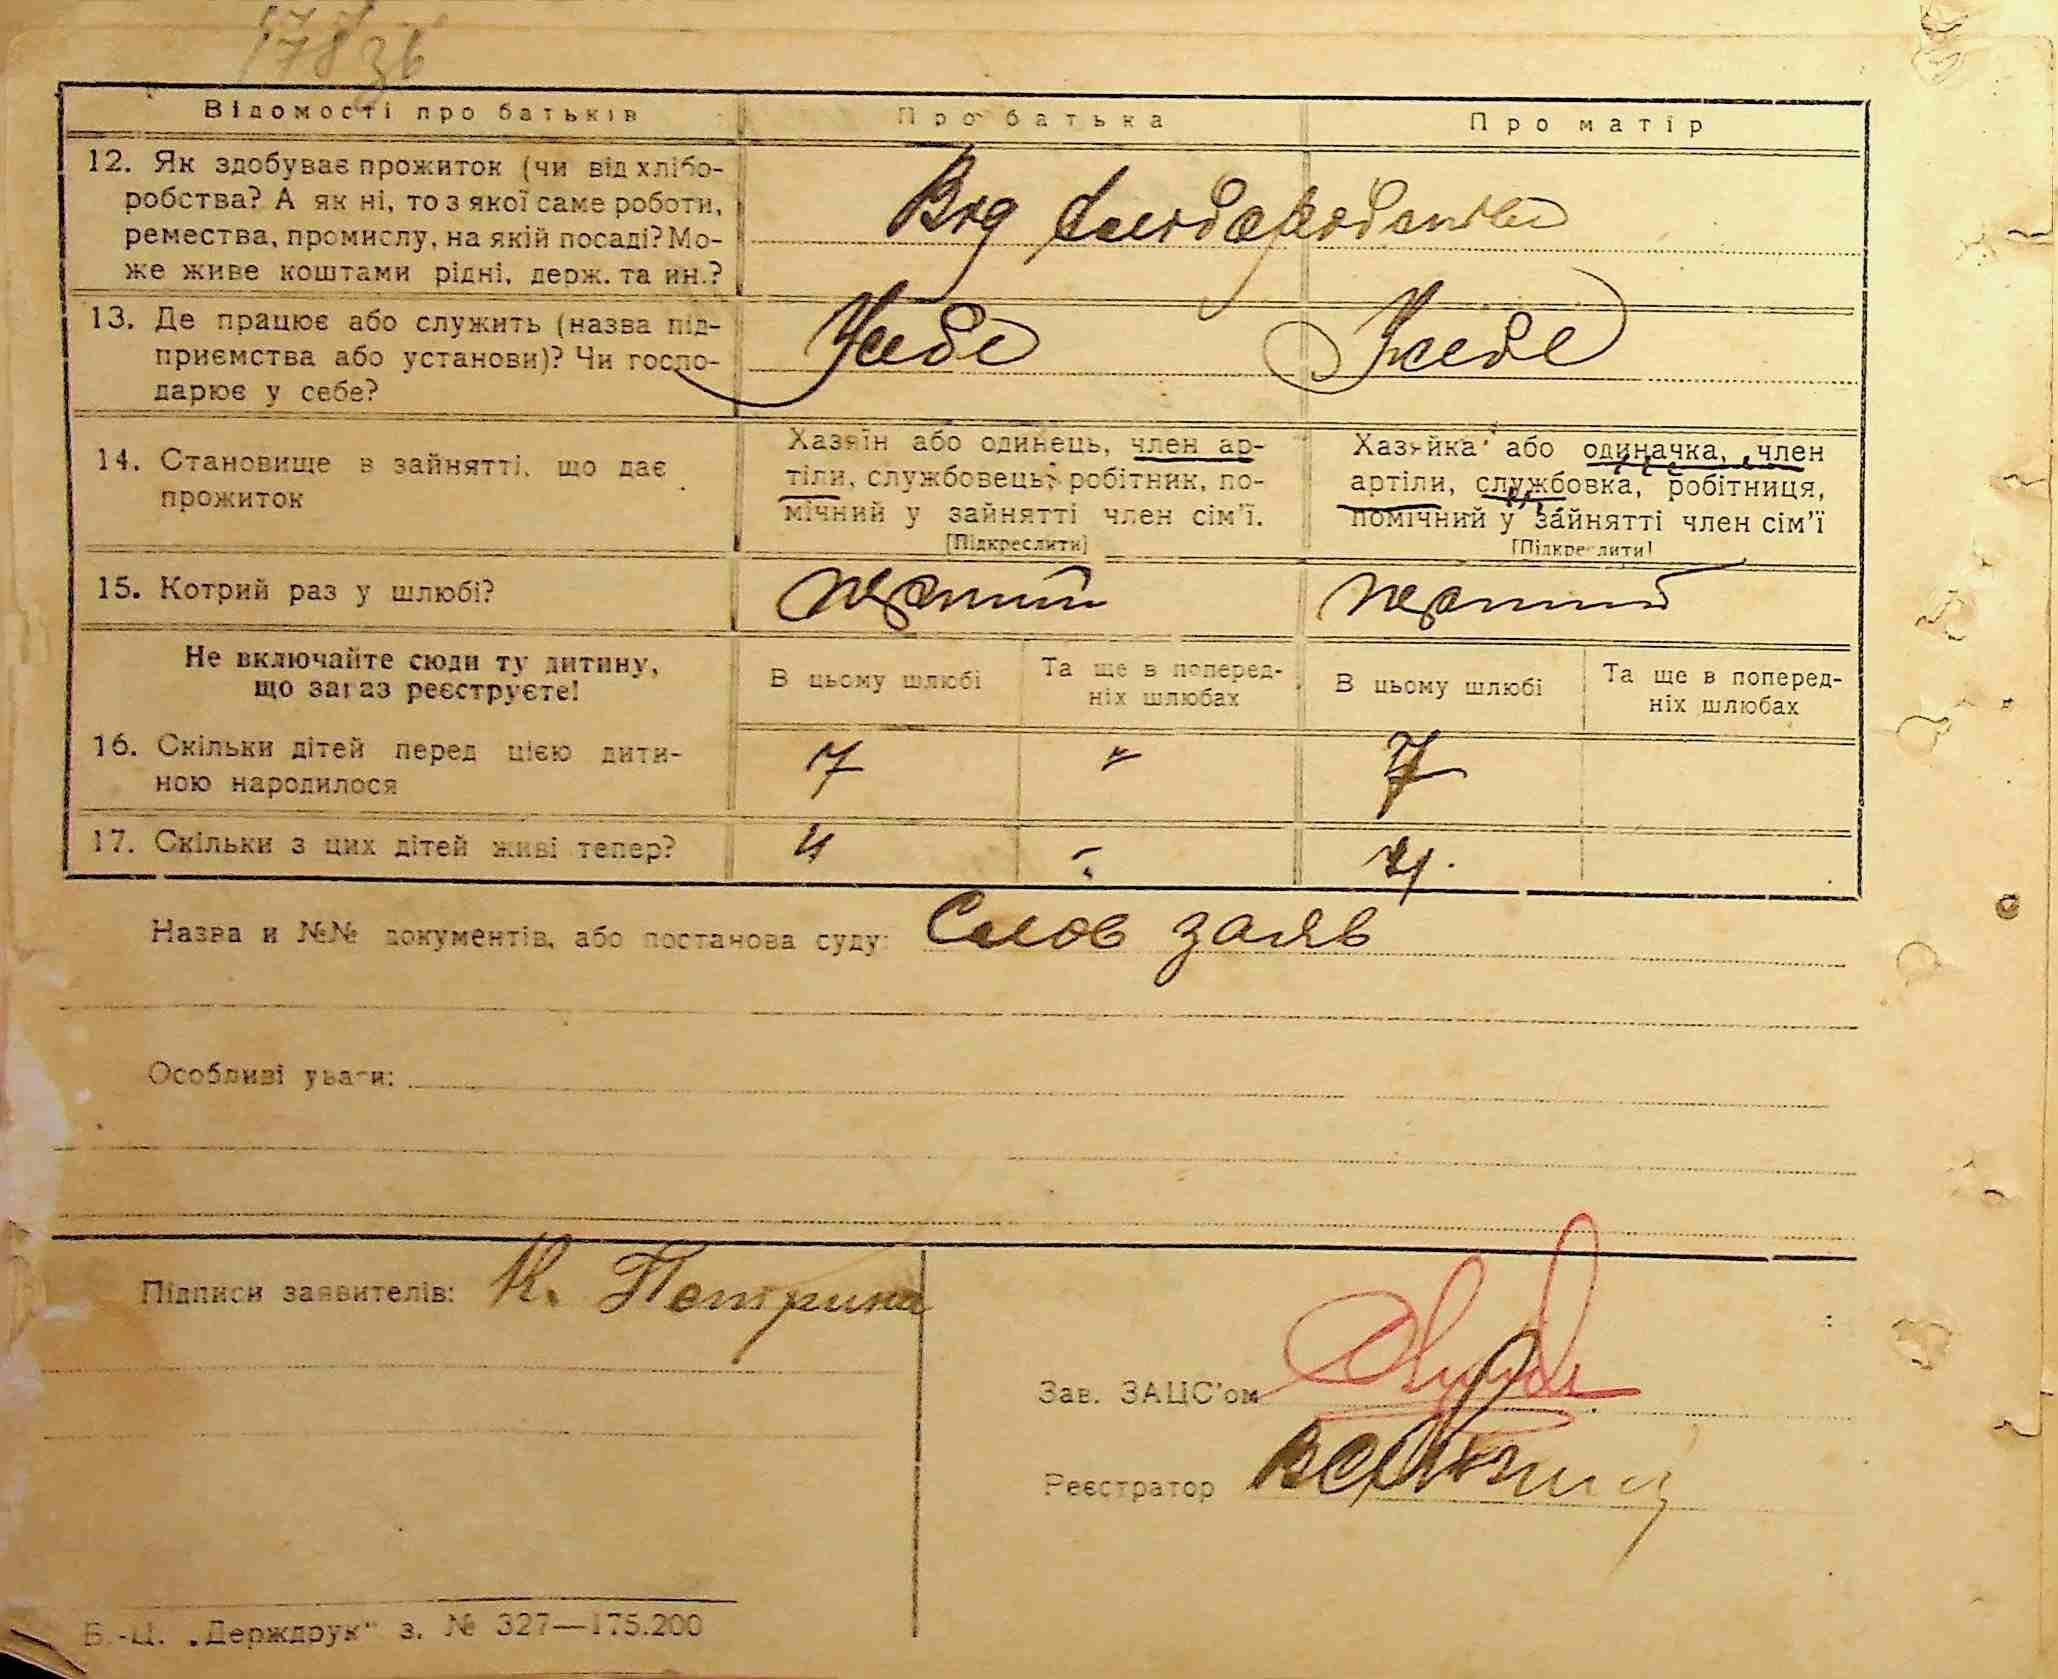 178 зв
Відомості про батьків
Про батька
Про матір
12. Як здобуває прожиток (чи від хлібо-
робства? А як ні, то з якої саме роботи,
ремества, промислу, на якій посаді? Мо-
же живе коштами рідні, держ. та ин.?
Від хліборобства
13. Де працює або служить (назва під-
приємства або установи)? Чи госпо-
дарює у себе?
Усебе
Усебе
14. Становище в зайнятті, що дає
прожиток
Хазяїн або одинець, член ар-
тіли, службовець, робітник, по-
мічний у зайнятті член сім'ї.
[Підкреслити]
Хазяйка або одиначка, член
артіли, службовка, робітниця,
помічний у зайнятті член сім'ї
[Підкреслити]
15. Котрий раз у шлюбі?
перший
перший
Не включайте сюди ту дитину,
що зараз реєструєте!
В цьому шлюбі
Та ще в поперед-
ніх шлюбах
В цьому шлюбі
Та ще в поперед-
ніх шлюбах
16. Скільки дітей перед цією дити-
ною народилося
7
"
7
17. Скільки з цих дітей живі тепер?
4
4.
Назва и №№ документів, або постанова суду: Слов заяв
Особливі уваги:
Підписи заявителів: К. Петрина
Зав. ЗАЦС'ом
Реєстратор
В.-Ц. „Держдрук" з. № 327—175.200